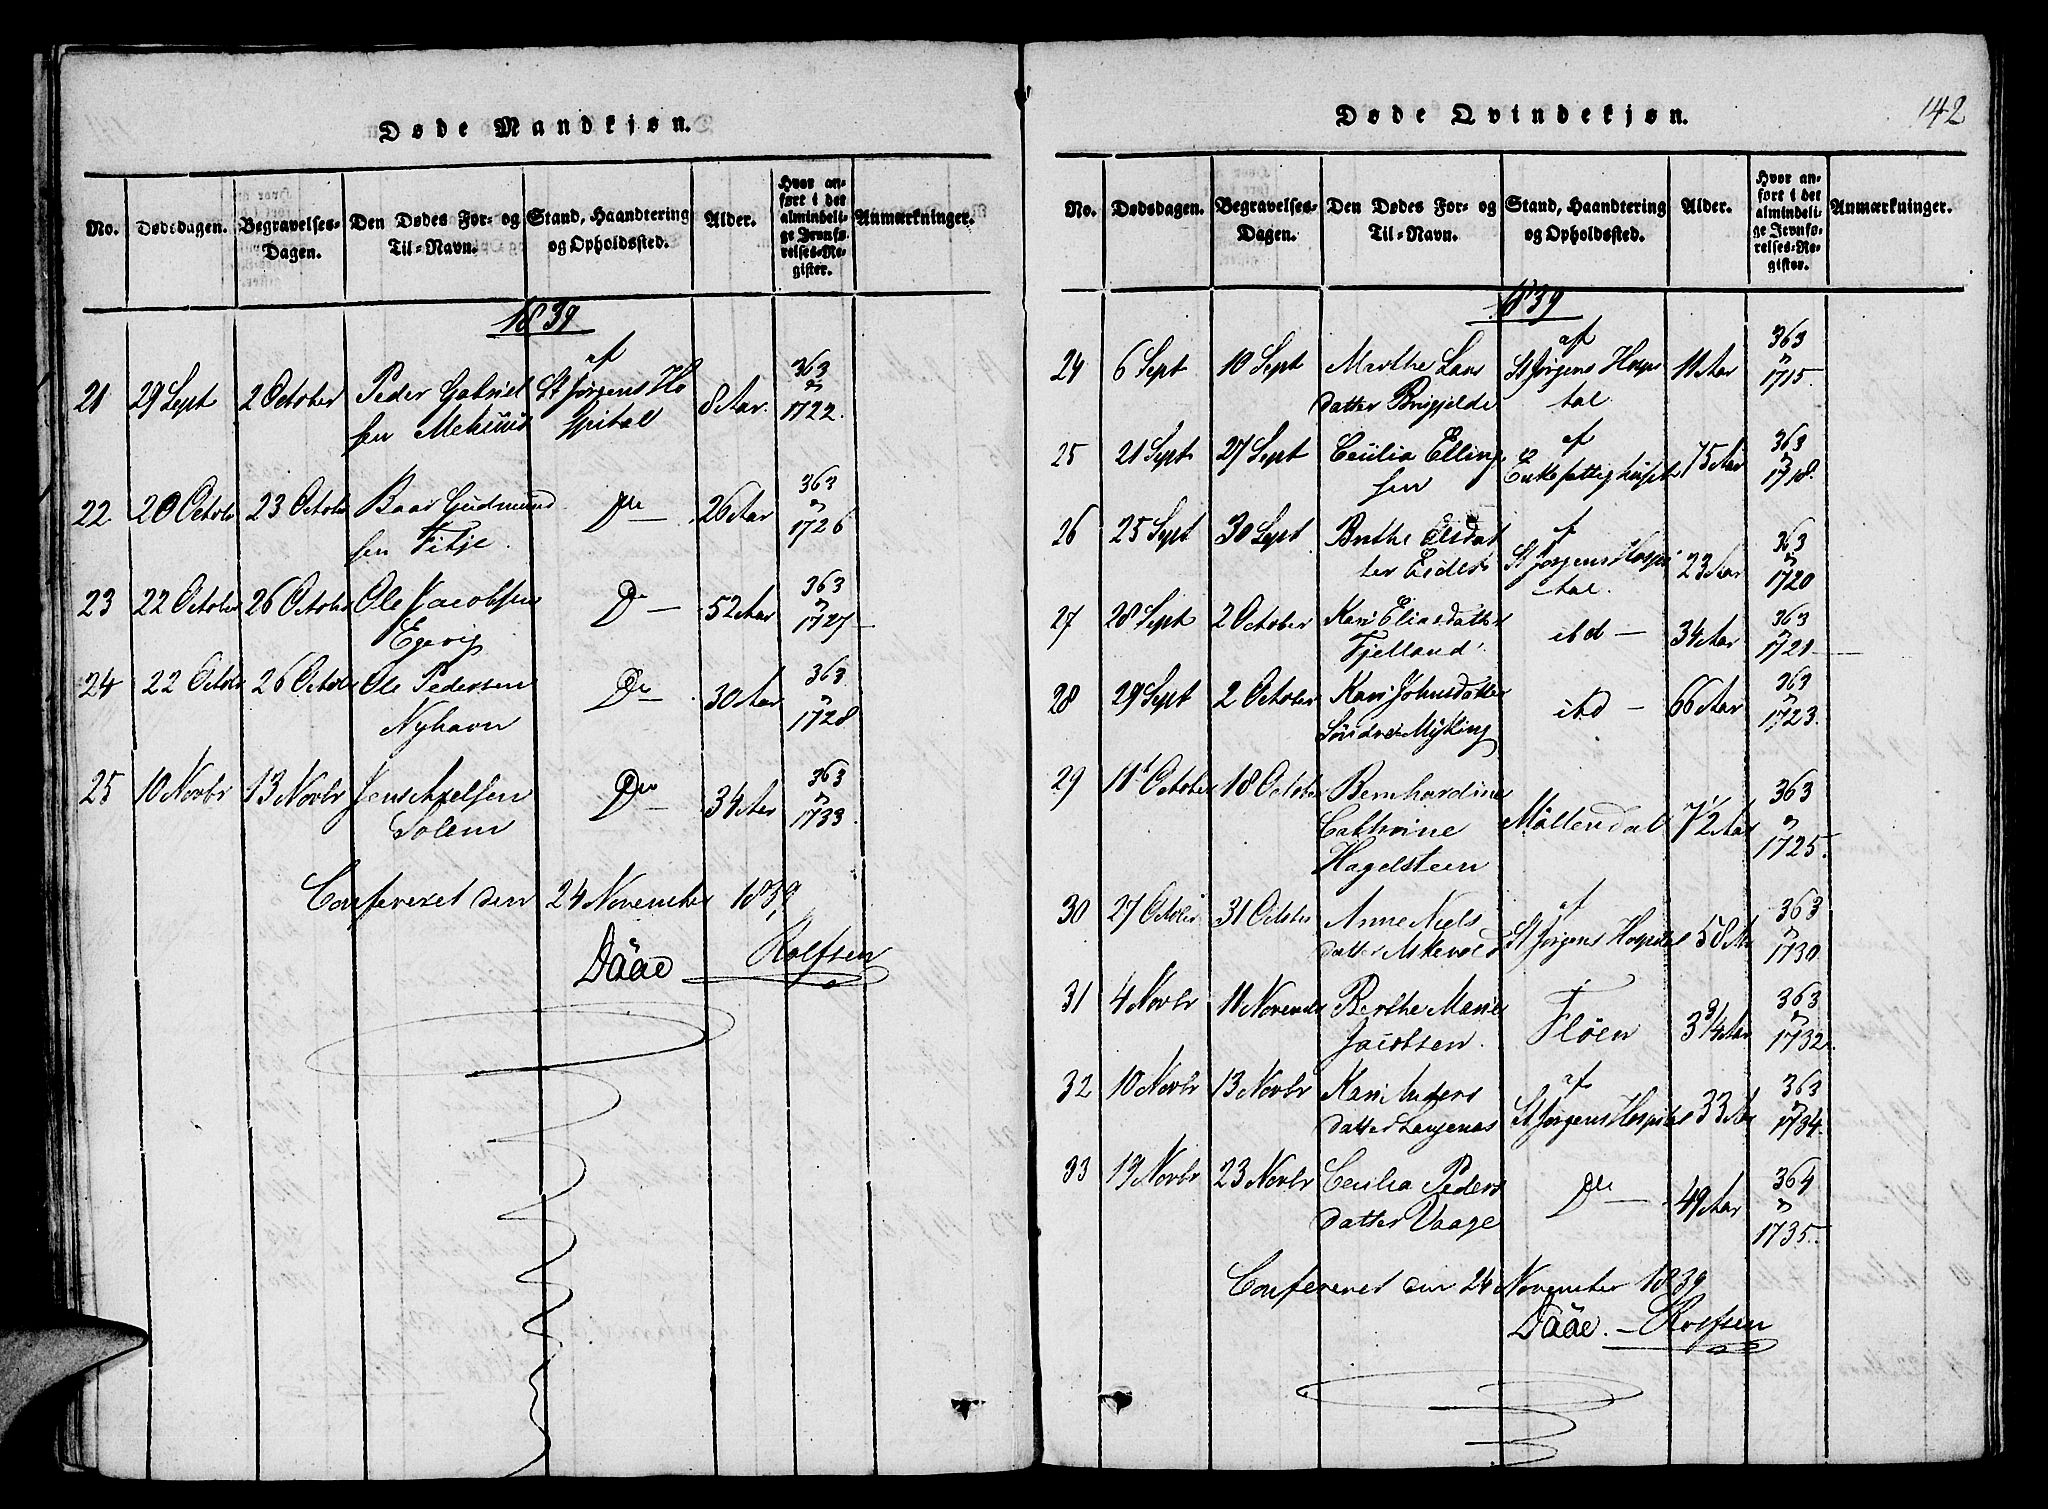 Døde Mandkjøn.
No.
Dødsdagen.
Begravelses-
Dagen.
Den Dødes For- og
Til-Navn.
Stand, Haandtering
og Opholdssted.
Alder.
Hvor an-
ført i det
almindeli-
ge Jevnfø-
relses-Re-
gister.
Anmærkninger.
1839
21 29 Sept 2 October Peder Gabriel af St Jørgens Ho 8 Aar. 363
sen Meksund spital 1722.
22 20 Octobr 23 Octobr Baar Gudmund Do 26 Aar 363
sen Fitje. 1726
23 22 October 26 October Ole Jacobsen Do 52 Aar 363
Egevig 1727
24 22 Octobr 26 Octobr Ole Pedersen Do 30 Aar 363
Nyhavn 1728
25 10 Novbr 13 Novbr Jens Axelsen Do 34 Aar 363
Solem 1733
Confereret den 24 November 1839
Dååe Rolfsen
142
Døde Qvindekjøn.
No.
Dødsdagen.
Begravelses-
Dagen.
Den Dødes For- og
Til-Navn.
Stand, Haandtering
og Opholdssted.
Alder.
Hvor an-
ført i det
almindeli-
ge Jevnfø-
relses-Re-
gister.
Anmærkninger.
1839
24 6 Sept 10 Sept Marthe Lars af St Jørgens Hospi 11 Aar 363
datter Bregjelde tal 1715.
25 21 Sept 27 Sept Cecilia Elling af 75 Aar 363
sen Enkefattighuset 1718.
26 25 Sept 30 Sept Brithe Elsdat af St Jørgens Hospi 23 Aar 363
ter Eidet tal. 1720
27 28 Sept 2 October Kari Eliasdatter ibd 34 Aar 363
Fjelland 1721
28 29 Sept 2 October Kari Johnsdatter ibd 66 Aar 363
Søndre Mykling 1723.
29 11t October 18 October Bernhardine Møllendal 7 1/2 Aar 363
Cathrine 1725.
Hagelsteen
30 27 Octobr 31 Octobr Anne Niels af St Jørgens Hospital 58 Aar 363
datter Askevold 1730
31 4 Novbr 11 November Berthe Marie Fløen 3 3/4 Aar 363
Jacobsen. 1732
32 10 Novbr 13 Novbr Kari Anders af St Jørgens Hospital 33 Aar 363
datter Langenæs 1734.
33 19 Novbr 23 Novbr Cecilia Peders Do 49 Aar 364
datter Vaage 1735.
Confereret den 24 November 1839
Dååe. Rolfsen